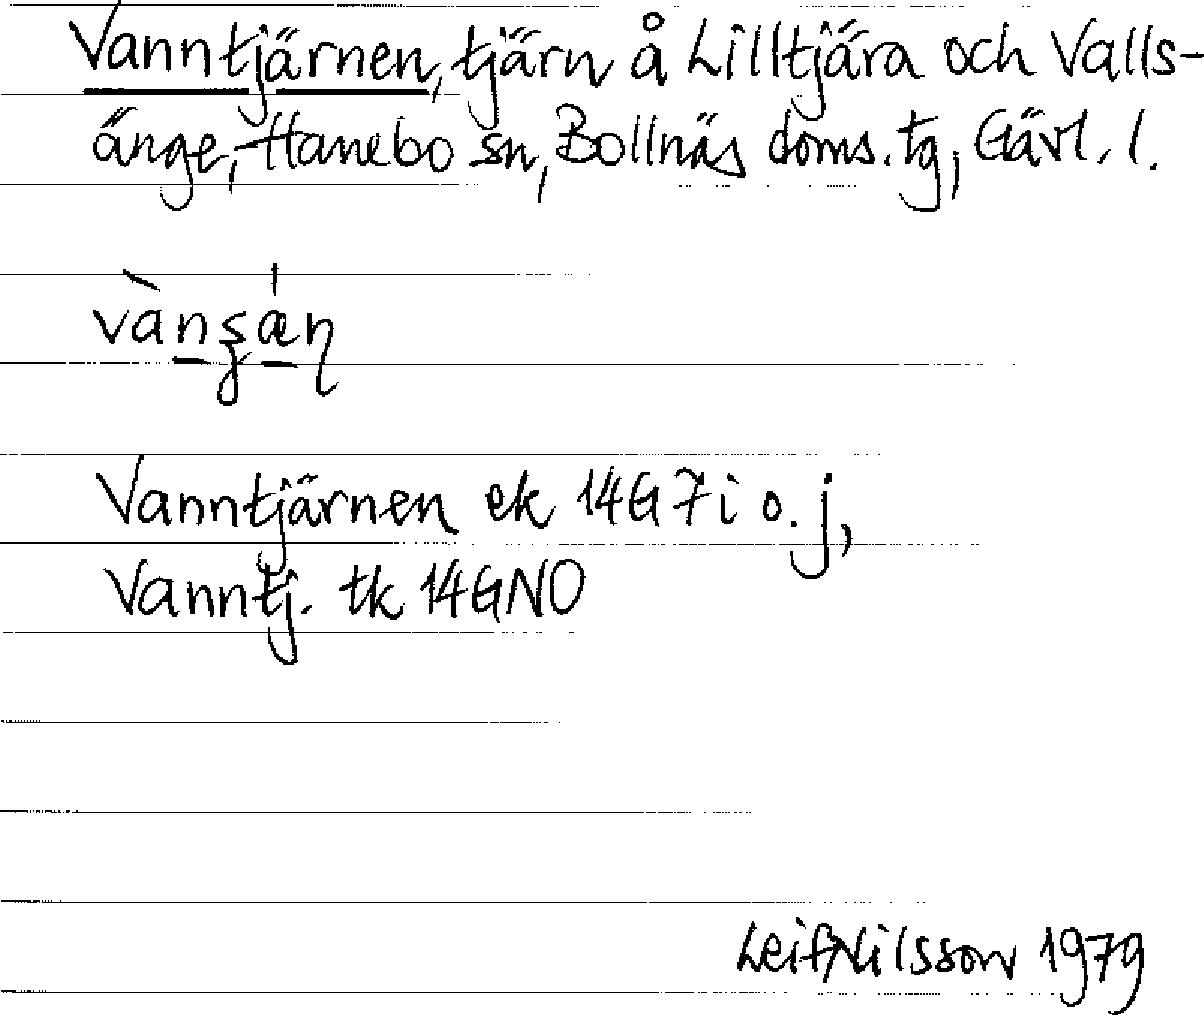 Vanntjärnen, tjärn å Lilltjära och Valls-
änge, Hanebo sn, Bollnäs doms. tg, Gävl. l.
vànʂæ̀ɳ
Vanntjärnen ek 14G 7i o. j,
Vanntj. tk 14GNO
Leif Nilsson 1979